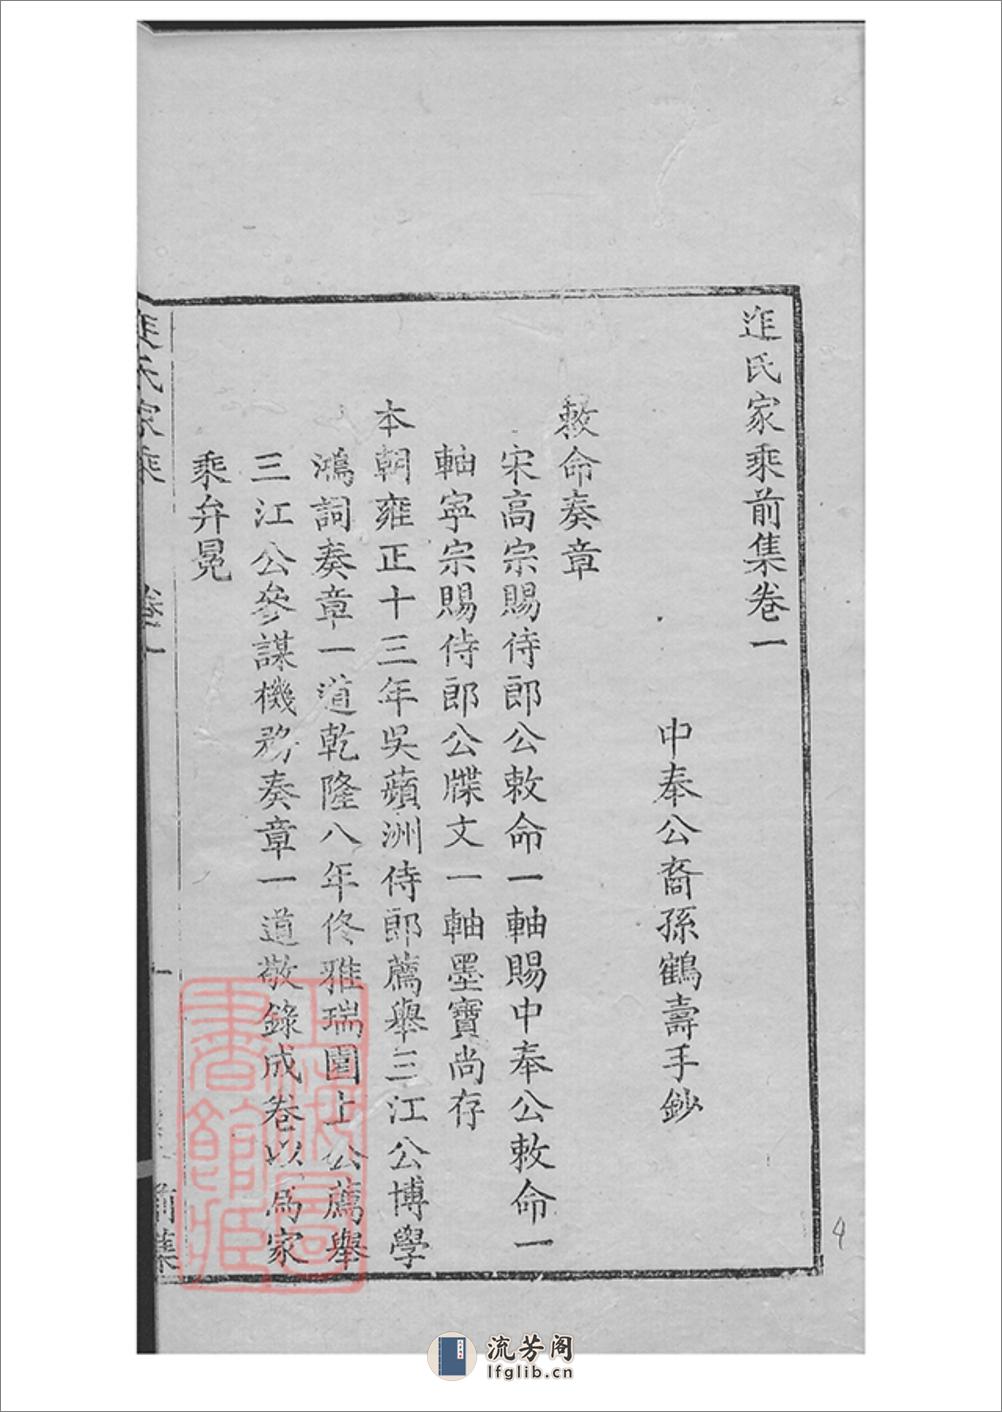 迮氏家乘前集卷一
中奉公裔孫鶴壽手鈔
敕命奏章
宋高宗賜侍郎公敕命一軸賜中奉公敕命一
軸寧宗賜侍郎公牒文一軸墨寶尚存
本朝雍正十三年吳蘋洲侍郎薦舉三江公博學
鴻詞奏章一道乾隆八年佟雅瑞園上公薦舉
三江公參謀機務奏章一道敬錄成卷以為家
乘弁冕
迮氏家乘 卷一 一 前集
上海圖書館藏
4
流芳阁
lfglib.cn